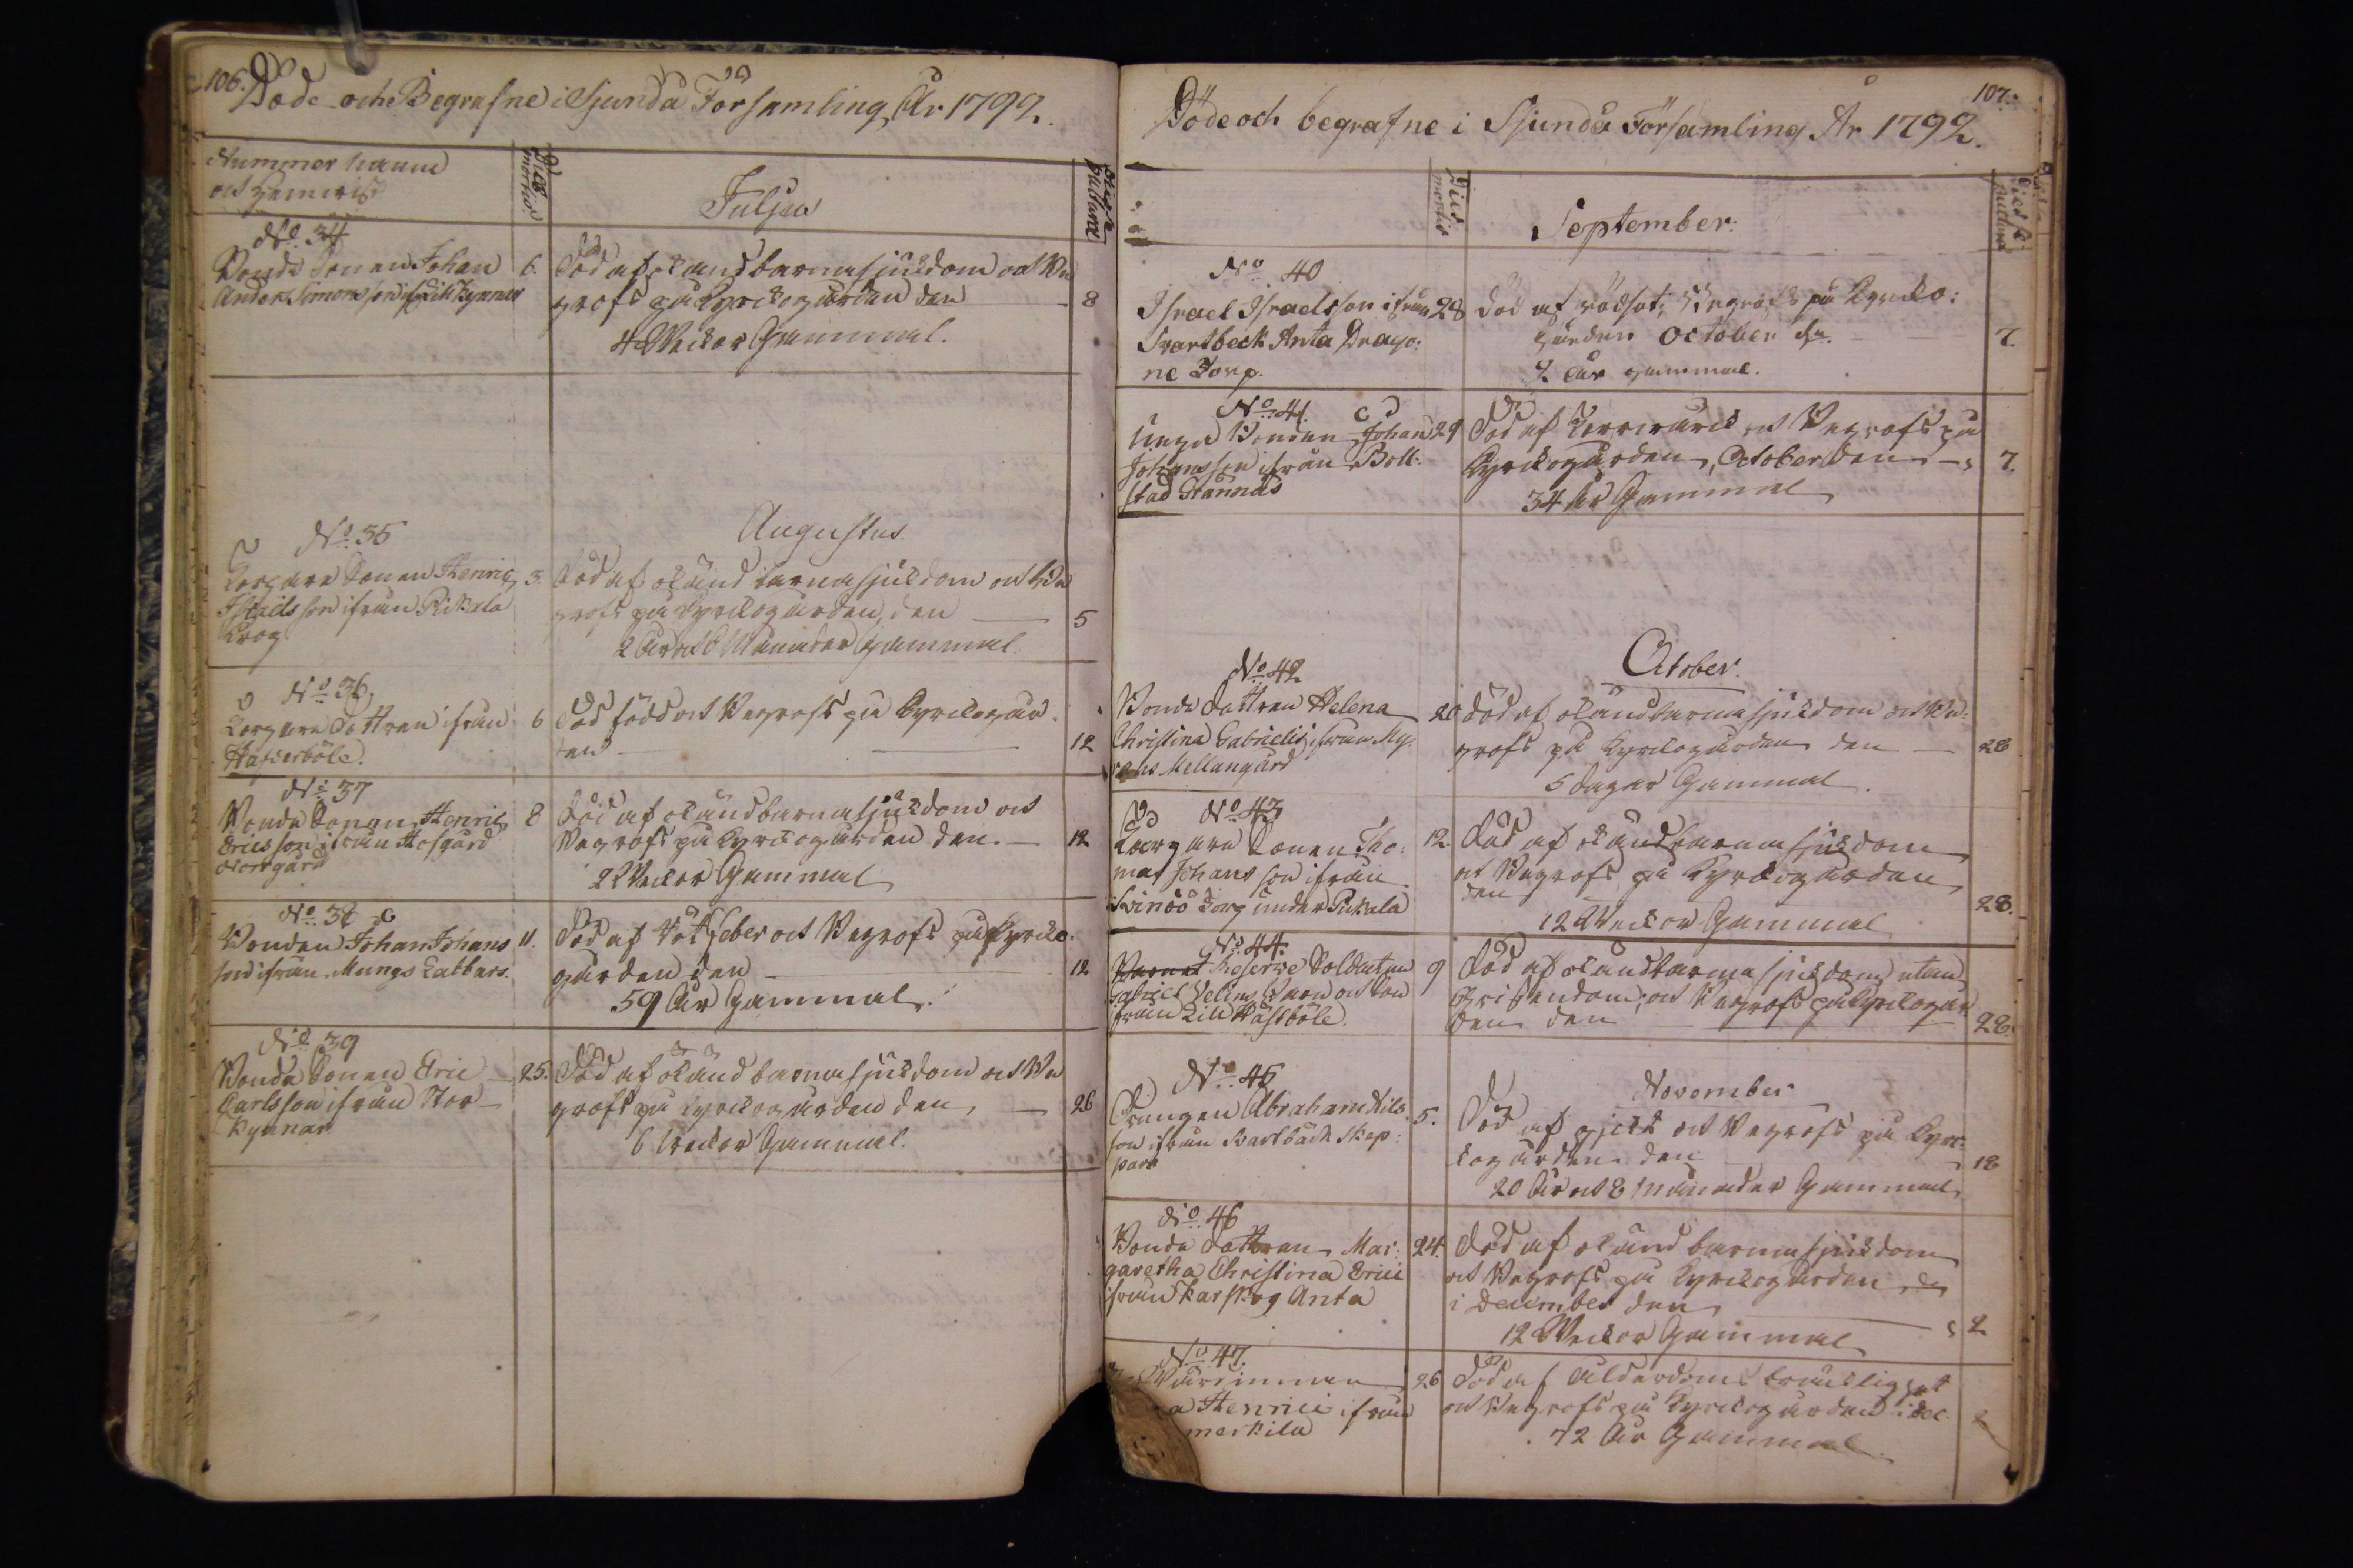 106.
Döde och Begrafne i Sjundå Församling År 1792.
Nummer Namn
och Hemvist
Dies mortis
Julius
Dies sepulturæ
No. 34
Bonde Sonen Johan
Anders Simonsson if. Lill Kynnar
6.
Död af okänd barnasjukdom och be
grofs på Kyrckogården den
8
4 Veckor Gammal.
Augustus
No. 35
Torpare Sonen Henric
Israelsson ifrån Pickala
Krog
3.
Död af okänd barnasjukdom och be
grofs på Kyrckogården, den
5
2 År och 6 Månader gammal.
No. 36.
Torpare Dottren ifrån
Hafverböle.
6
Död född och Begrofs på Kyrckogår
den
12
No. 37
Bonde Sonen Henric
Ericsson ifrån Hofgård
Norrgård
8
Död af okänd barnasjukdom och
Begrofs på Kyrckogården den.
12
2 Veckor Gammal
No. 38
Bonden Johan Johans
son ifrån Mungs Labbars.
11.
Död af Rötfeber och Begrofs på Kyrcko
gården den
12
59 År Gammal.
No. 39
Bonde Sonen Eric
Carlsson ifrån Stor
Kynnar
25.
Död af okänd barnasjukdom och Be
grofs på Kyrckogården den
26
6 Veckor Gammal.
107.
Döde och begrafne i Sjundå Församling År 1792.
Dies mortis
September.
Dies sepulturæ
No. 40
Israel Israelsson ifrån
Svartbeck Anta Drago:
ne Torp.
28
Död af rödsot; Begrofs på Kyrcko:
gården October den
7.
År gammal.
No. 41.
Unga Bonden Johan
Johansson ifrån Boll:
stad Grannas
29
Död af och Begrofs på
Kyrckogården, October den
7.
34 År Gammal
October.
No. 42
Bonde Dottren Helena
Christina Gabrielis ifrån My:
rans Mellangård
20
död af okänd barnasjukdom och Be:
grofs på Kyrckogården den
28
5 dagar Gammal.
No. 43
Torpare Sonen Tho:
mas Johansson ifrån
Svinöö Torp under Pickala
12.
Död af okänd barnasjukdom
och Begrofs på Kyrckogården
den
28.
12 Veckor Gammal
No. 44.
Reserve Soldaten
Gabriel Velins Barn och Son
från Lill Hästböle.
9
Död af okänd barnasjukdom utan
Christendom; och Begrofs på Kyrckogår
den den
28.
November
No. 45
Drengen Abraham Nils
son ifrån Svartbäck Skep:
pars
5.
Död af och Begrofs på Kyrc:
kogården den
18
20 År och 8 Månader Gammal
No. 46
Bonde Dottren Mar:
garetha Christina Erici
ifrån Karskog Anta
24.
Död af okänd barnasjukdom
och Begrofs på Kyrckogården
i December den
2
12 Veckor Gammal
No. 47.
a Henrici ifrån
merkila
26
Död af Ålderdoms bräcklighet
och Begrofs på Kyrckogården i Dec.
2
72 År Gammal.